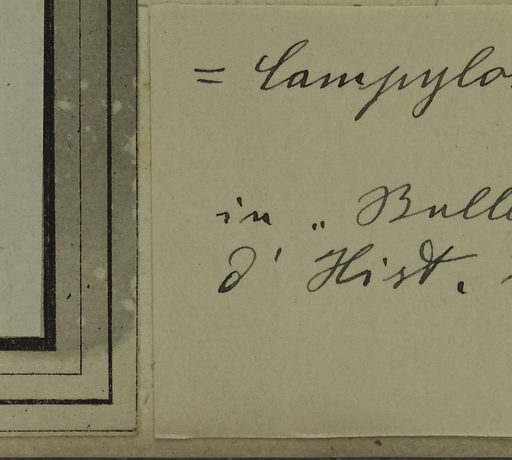 = Campylo
in „ Bulle
d' Hist.